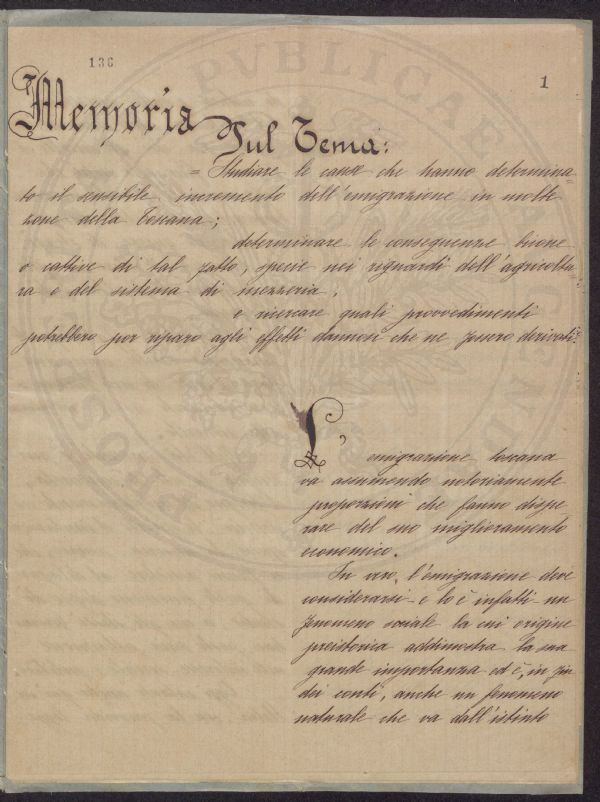 136
1
Memoria
Sul Tema:
= Studiare le cause che hanno determina=
to il sensibile incremento dell'emigrazione in molte
zone della Toscana;
determinare le conseguenze buone
o cattive di tal fatto, specie nei riguardi dell'agricoltu=
ra e del sistema di mezzeria;
e ricercare quali provvedimenti
potrebbero por riparo agli effetti dannosi che ne fossero derivati=
L'emigrazione toscana
va assumendo notoriamente
proporzioni che fanno dispe=
rare del suo miglioramento
economico.
In vero, l'emigrazione deve
considerarsi e lo è infatti un
fenomeno sociale la cui origine
preistorica addimostra la sua
grande importanza ed è, in fin
dei conti, anche un fenomeno
naturale che va dall'istinto
PVBLICAE
PROSPE